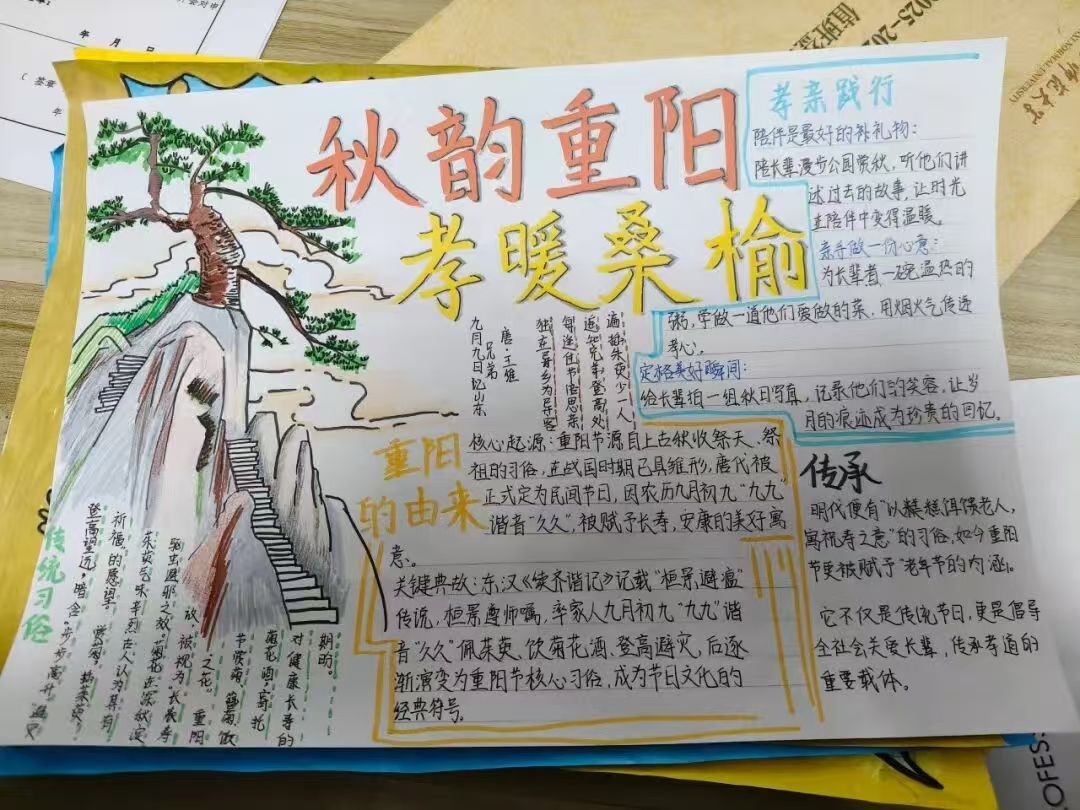 年 月 日
(签章
年
2025-20
值班
NORMAL UNIVERSITY
秋韵重阳
孝暖桑榆
孝亲践行
陪伴是最好的补礼物：
陪长辈漫步公园赏秋，听他们讲
述过去的故事，让时光
在陪伴中变得温暖。
亲手做一份心意：
为长辈煮一碗温热的
粥，学做一道他们爱做的菜，用烟火气传递
孝心。
定格美好瞬间：
给长辈拍一组秋日写真，记录他们的笑容，让岁
月的痕迹成为珍贵的回忆。
九月九日忆山东
兄弟
唐·王维
独在异乡为异客
每逢佳节倍思亲
遥知兄弟登高处
遍插茱萸少一人
重阳
的由来
核心起源：重阳节源自上古秋收祭天、祭
祖的习俗，在战国时期已具雏形，唐代被
正式定为民间节日，因农历九月初九“九九”
谐音“久久”，被赋予长寿，安康的美好寓
意。
关键典故：东汉《续齐谐记》记载“桓景避瘟”
传说，桓景遵师嘱，率家人九月初九“九九”谐
音“久久”佩茱萸、饮菊花酒、登高避灾，后逐
渐演变为重阳节核心习俗，成为节日文化的
经典符号。
传承
明代便有“以糕餻饵馈老人，
寓祝寿之意”的习俗，如今重阳
节更被赋予“老年节的内涵。
它不仅是传统节日，更是倡导
全社会关爱长辈，传承孝道的
重要载体。
传统习俗
登高望远，暗含“步步高升”
祈福”的愿望，赏菊，插茱萸？
茱萸气味辛烈古人认为具有
驱虫避邪之效。菊花在深秋绽
放，被视为“长寿
之花”重阳
节赏菊，簪菊，饮
菊花酒，寄托
对健康长寿的
期盼。
PROFESS